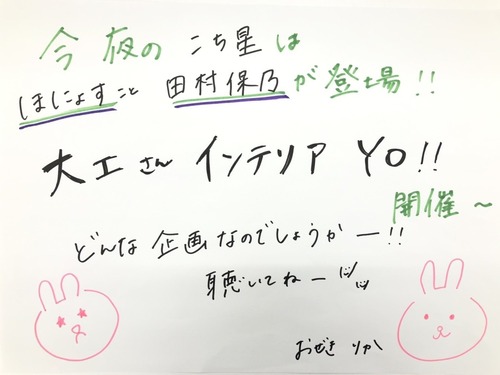 今夜の こち星は
ほにょすこと 田村保乃が登場!!
大工さん インテリア YO!!
開催～
どんな 企画なのでしょうかー!!
聴いてねー
おぜき りか